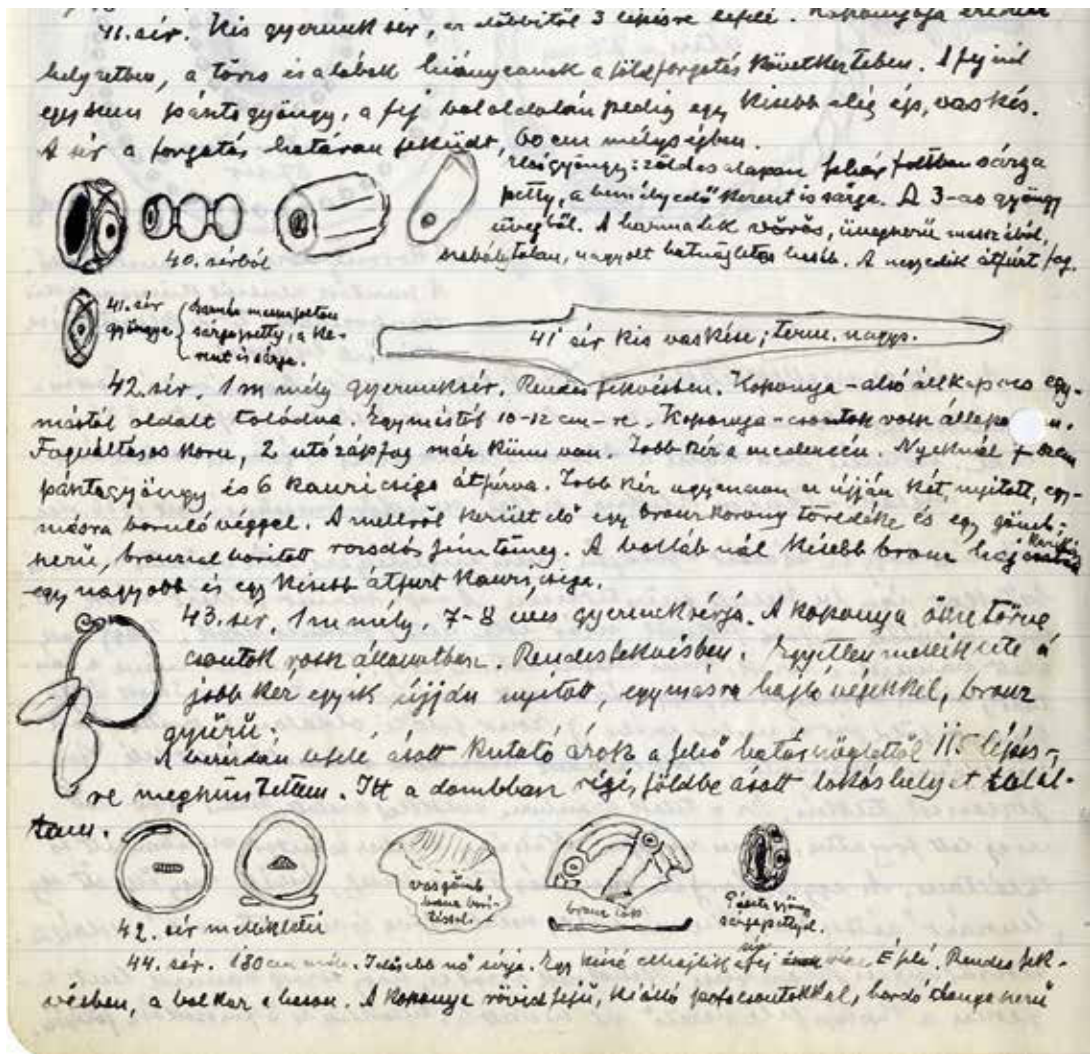 41. sír. Kis gyermek sír, az előbbitől 3 lépésre lefelé. Koponyája eredeti
helyzetben, a törzs és a lábak hiányzanak a földforgatás következtében. A fejnél
egy szem pántos gyöngy, a fej baloldalán pedig egy kisebb alig ép, vas kés.
A sír a forgatás határán feküdt, 60 cm mélységben.
Első gyöngy: zöldes alapon fehér foltban sárga
petty, a bemélyedő keret is sárga. A 3-as gyöngy
üvegből. A harmadik vörös, üvegszerű masszából,
szabálytalan, nagyolt hatszögletes hasáb. A negyedik átfúrt fog.
40. sírból
41. sír
gyöngye
sárga petty, a ke-
ret is sárga.
41 sír kis vaskése; term. nagys.
42. sír. 1 m mély gyermeksír. Rendes fekvésben. Koponya-alsó állkapocs egy-
mástól oldalt tolódva. Egymástól 10-12 cm-re. Koponya-csontok rossz állapo
Fogváltásos koru, 2 utózápfog már kiinn van. Jobb kéz a medencén. Nyaknál 7 szem
pántosgyöngy és 6 kauricsiga átfúrva. Jobb kéz ugyanazon az ujján két, nyitott, egy-
másra boruló véggel. A mellről került elő egy bronzkorong töredéke és egy gömb-
szerű, bronzzal borított rozsdás fém tömeg. A balláb nál kisebb bronz karika
egy nagyobb és egy kisebb átfúrt kauricsiga.
43. sír, 1 m mély, 7-8 éves gyermek sírja. A koponya össze törve
csontok rossz állapotban. Rendes fekvésben. Egyetlen melléklete a
jobb kéz egyik ujján nyitott, egymásra hajló végekkel, bronz
gyűrű.
A lefelé ásott kutató árok a felső határszöglettől 115 lépés-
re megszüntettem. Itt a dombban régi, földbe ásott lakáshelyet talál-
tam.
vasgömb
bronz borí-
tással.
bronz
Pántos gyöngy
sárga pettyel.
42. sír mellékletei
44. sír. 180 cm mély. Idősebb nő sírja. Egy kissé elhajlik a fej É felé. Rendes fek-
vésben, a bal kar a hason. A koponya rövid fejű, kiálló pofacsontokkal, hordó donga szerű